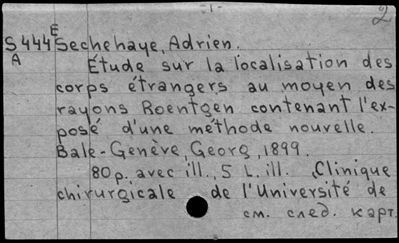 -1- 2
S444E Sechehaye, Adrien.
A Étude sur la localisation des
corps étrangers au moyen des
rayons Roentgen contenant l'ex-
posé d'une méthode nouvelle.
Bale-Genève, Georg, 1899.
80p. avec ill., 5 L. ill. (Clinique
chirurgicale de l'Université de
см. след. карт.